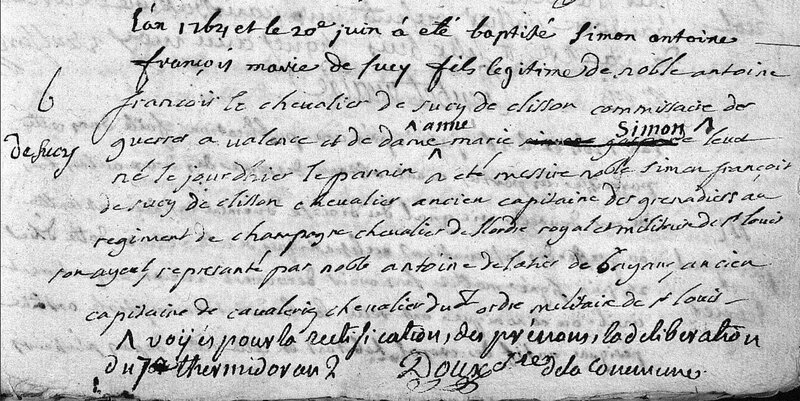 L'an 1764 et le 20e juin a été baptisé Simon antoine
françois marie de sucy fils legitime de noble antoine
6
françois le chevalier de sucy de clisson commissaire des
de sucy
guerres a valence et de dame ^ anne marie Simon ^
né le jour d'hier le parain ^ a été messire noble simon françois
de sucy de clisson chevalier ancien capitaine des grenadiers au
regiment de champagne chevalier de l'ordre royal et militaire de st louis
son ayeul, representé par noble antoine de latier de ancien
capitaine de cavalerie chevalier du ordre militaire de st louis
^ voyés pour la rectification, des prénoms, la deliberation
du thermidor an 2 Doux de la Commune